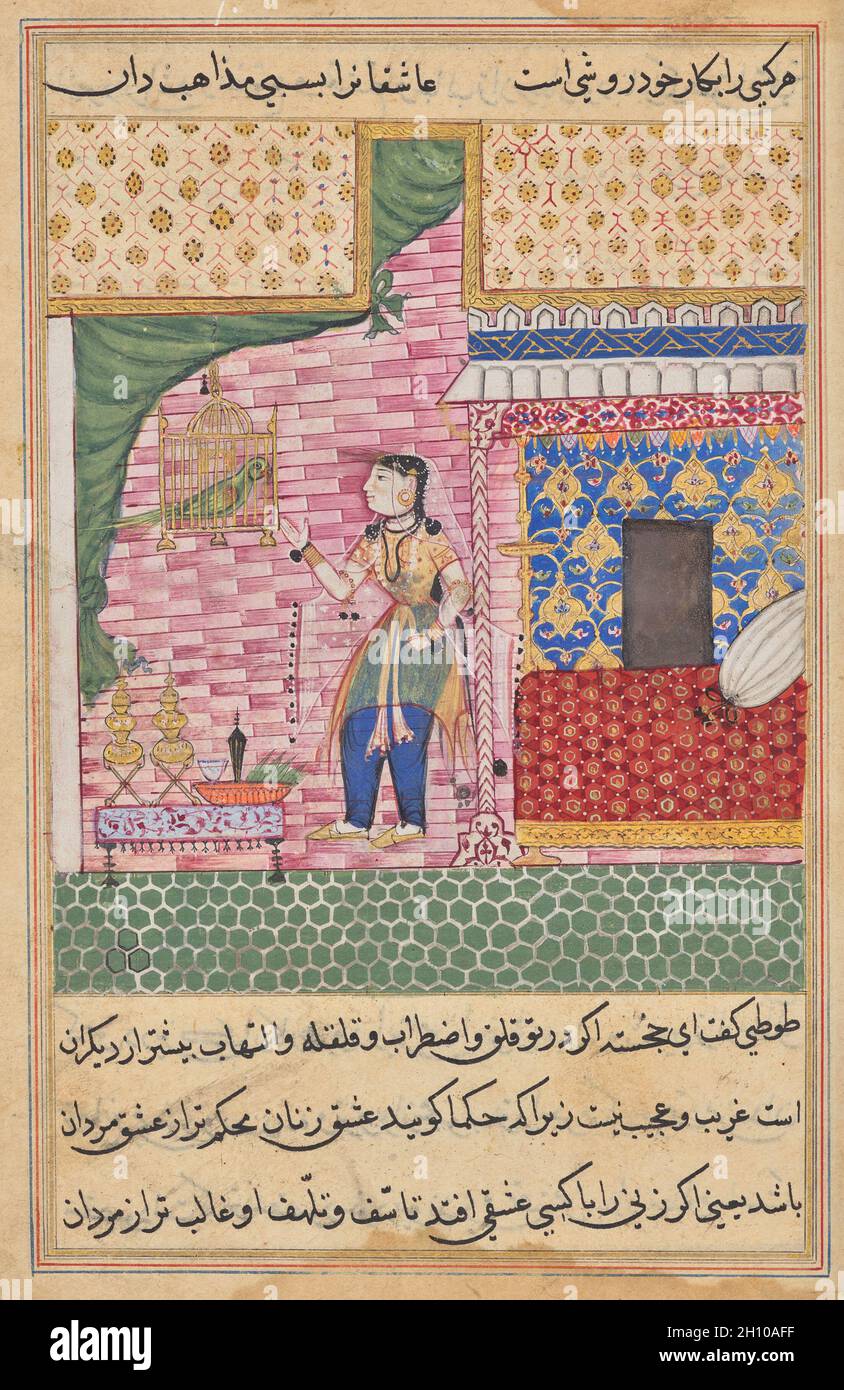 هر کسی را بکار خود روشی است عاشقانرا بسی مذاهب دان
طوطی کفت ای خجسته اکر در تو قلق و اضطراب و قلقله و التهاب بیشتر از دیکران
است غریب و عجیب نیست زیرا که حکما کویند عشق زنان محکم تر از عشق مردان
باشد یعنی اکر زنی را با کسی عشقی افتد تاسّف و تلهّف او غالب تر از مردان
alamy
Image ID: 2H10AFF
www.alamy.com